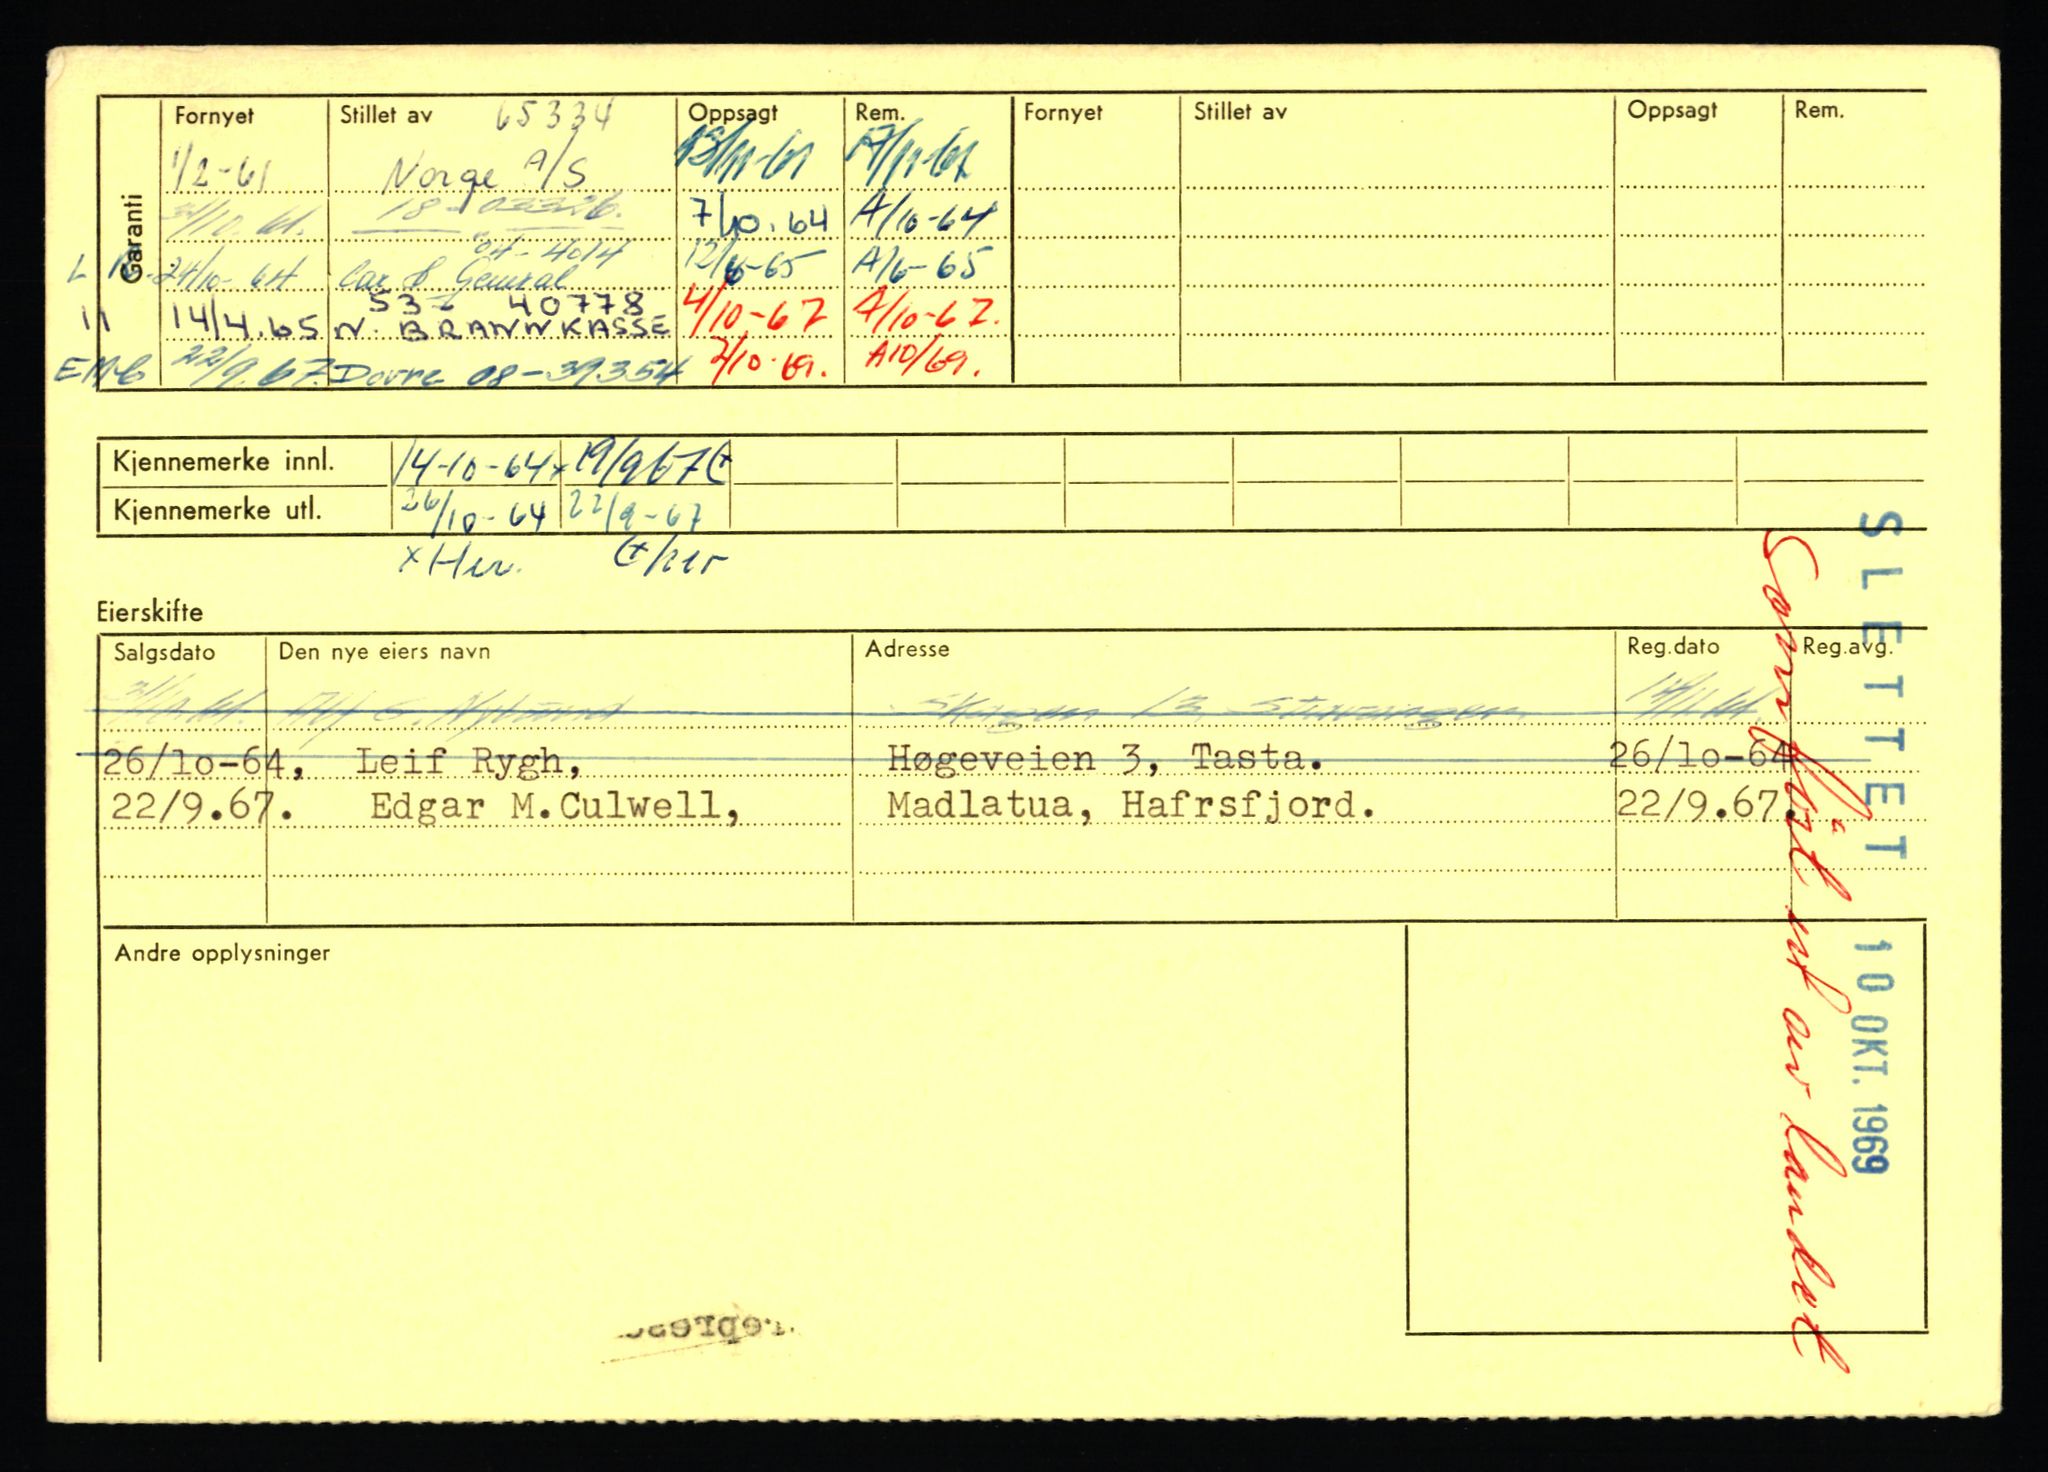 Garanti
Fornyet Stillet av 65334 Oppsagt Rem. Fornyet Stillet av Oppsagt Rem.
1/2-61 Norge A/S
31/10.61. 18-03326. 7/10.64 A/10-64
04-4014
24/10-64 Car & General 12/6-65 A/6-65
53- 40778
" 14/4.65 N. BRANNKASSE 4/10-67 A/10-67.
EMC 22/9.67. Dovre 08-39354 2/10.69. A10/69.
Kjennemerke innl. 14-10-64x 19/9 67
Kjennemerke utl. 26/10-64 22/9-67
x Her. her
Eierskifte
Salgsdato Den nye eiers navn Adresse Reg.dato Reg.avg.
31/10.61. Skagen 13, Stavanger
26/1o-64, Leif Rygh, Høgeveien 3, Tasta. 26/1o-64
22/9.67. Edgar M.Culwell, Madlatua, Hafrsfjord. 22/9.67.
Andre opplysninger
SLETTET
10 OKT. 1969
ført ut av landet